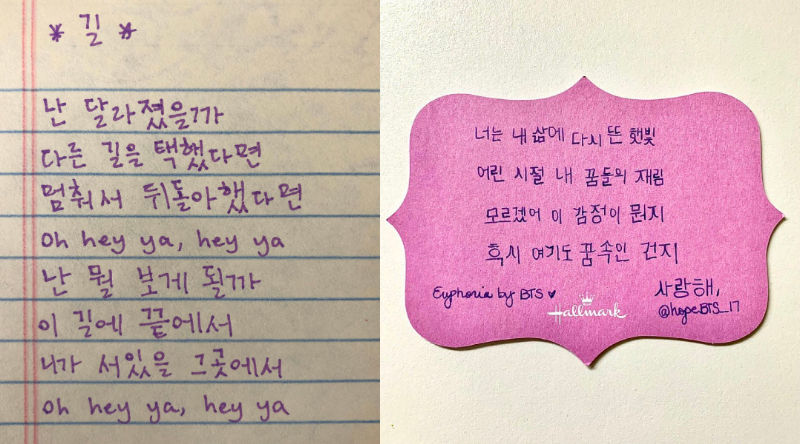 * 길 *
난 달라졌을까
다른 길을 택했다면
멈춰서 뒤돌아했다면
oh hey ya, hey ya
난 뭘 보게 될까
이 길에 끝에서
니가 서있을 그곳에서
oh hey ya, hey ya
너는 내 삶에 다시 뜬 햇빛
어린 시절 내 꿈들의 재림
모르겠어 이 감정이 뭔지
혹시 여기도 꿈속인 건지
Euphoria by BTS ♥
사랑해,
@hopeBTS_17
Hallmark